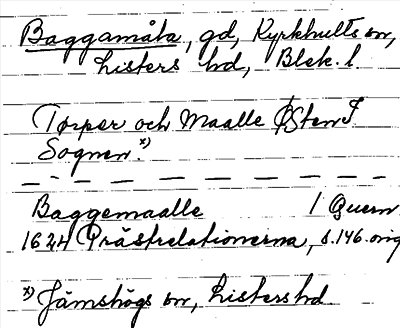 Baggamåla, gd, Kyrkhults sn,
Listers hd, Blek. l
Torper och Maalle Østen I
Sognen. x)
Baggemaalle 1 Quern
1624 Prästrelationerna, s.146. orig
x) Jämshögs sn, Listers hd